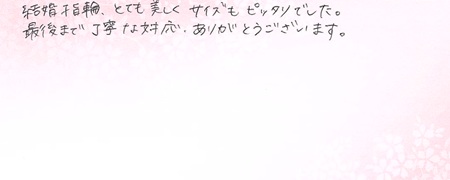 結婚指輪、とても美しくサイズもピッタリでした。
最後まで丁寧な対応、ありがとうございます。